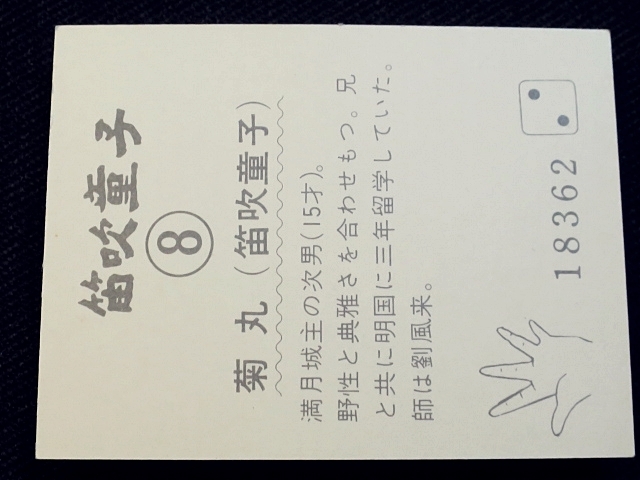 笛吹童子
8
菊丸(笛吹童子)
満月城主の次男(15才)。
野性と典雅さを合わせもつ。兄
と共に明国に三年留学していた。
師は劉風来。
18362